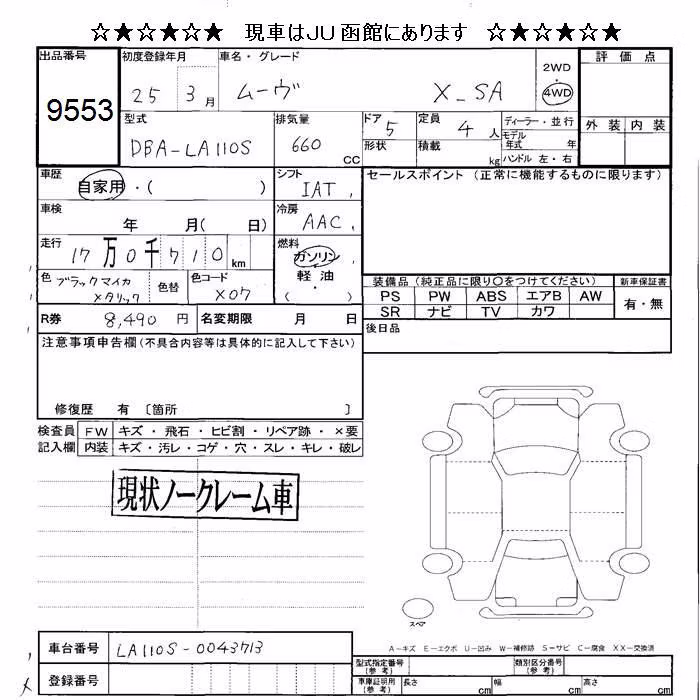 ☆★☆★☆★ 現車はJU函館にあります ☆★☆★☆★
出品番号 9553
初度登録年月 25 3月
車名・グレード ムーヴ X_SA
2WD・4WD
評価点
型式 DBA-LA110S
排気量 660 CC
ドア 5
形状
定員 4人
積載 kg
ディーラー・並行
モデル年式 年
ハンドル 左・右
外装 内装
車歴 自家用・( )
シフト IAT
セールスポイント(正常に機能するものに限ります)
車検 年 月( 日)
冷房 AAC
走行 17万0千710km
燃料 ガソリン・軽油・( )
色 ブラックマイカメタリック
色替
色コード X07
装備品(純正品に限り〇をつけてください)
新車保証書
PS PW ABS エアB AW
有・無
SR ナビ TV カワ
R券 8,490円
名変期限 月 日
後日品
注意事項申告欄(不具合内容等は具体的に記入して下さい)
修復歴 有 〔箇所 〕
検査員記入欄
FW キズ・飛石・ヒビ割・リペア跡・×要
内装 キズ・汚レ・コゲ・穴・スレ・キレ・破レ
現状ノークレーム車
スペア
A-キズ E-エクボ U-凹み W-補修跡 S-サビ C-腐食 XX-交換済
車台番号 LA110S-0043713
登録番号
型式指定番号(参考)
類別区分番号(参考)
車庫証明用(参考) 長さ cm 幅 cm 高さ cm